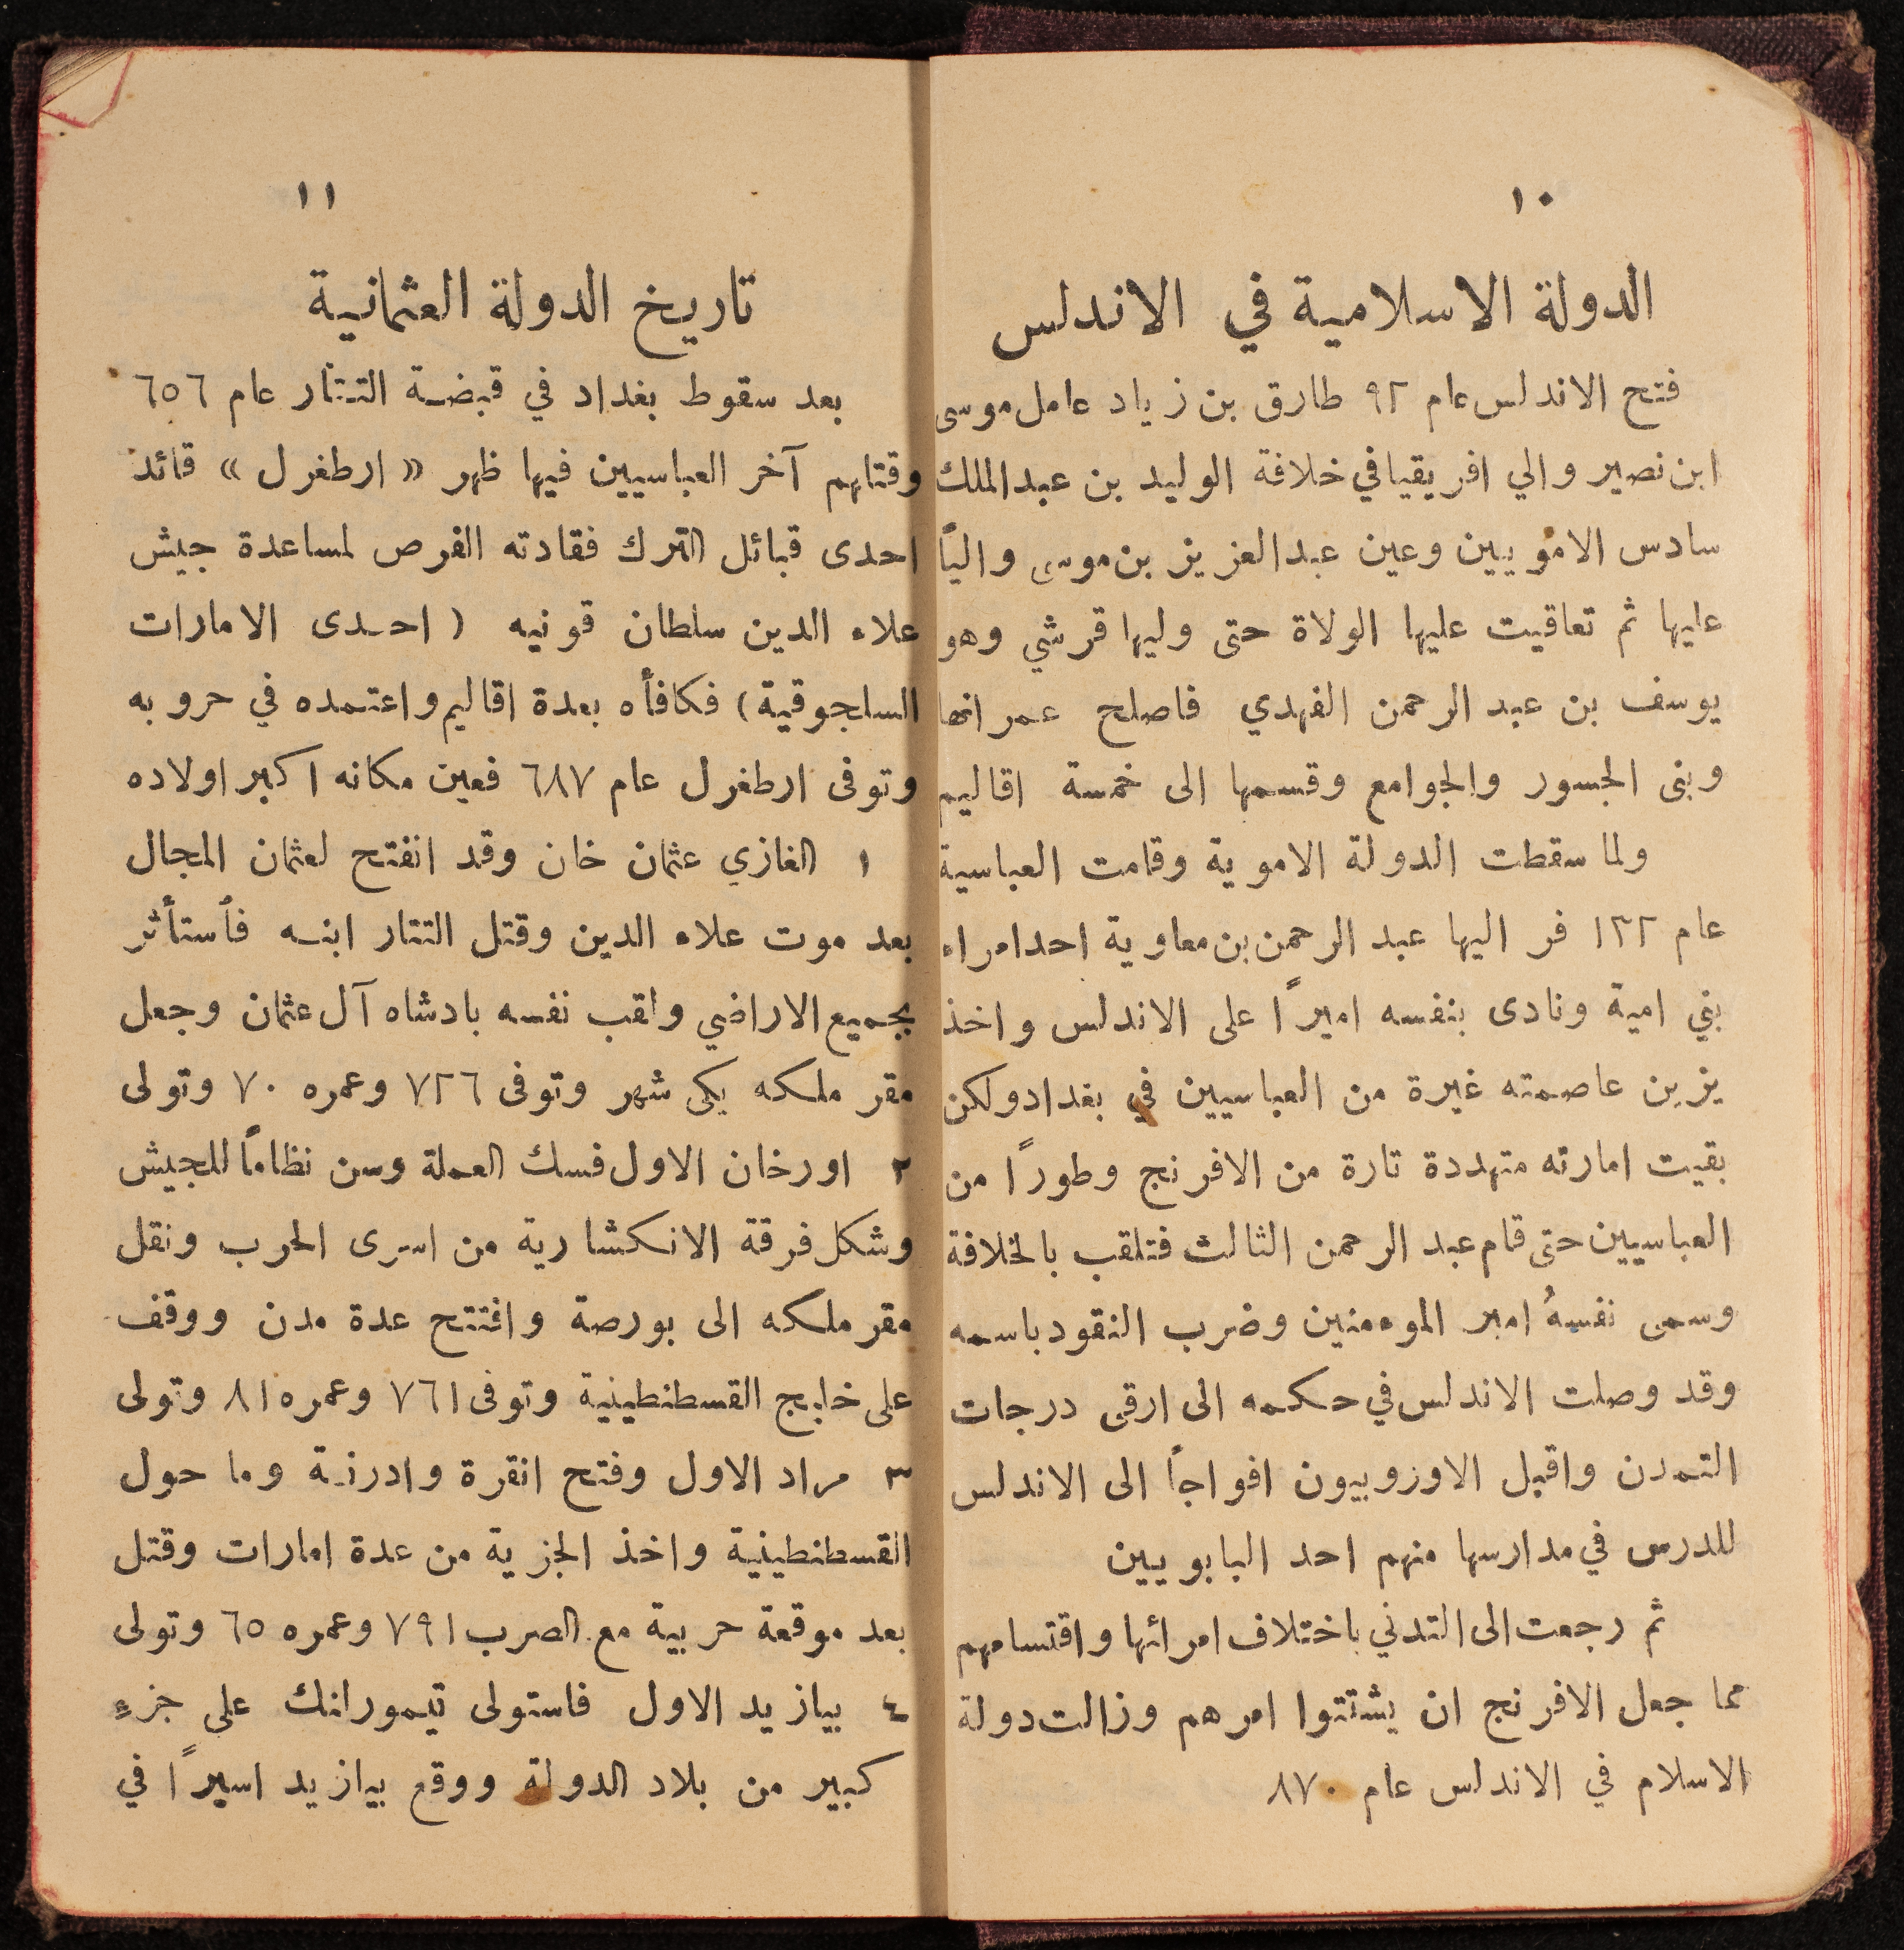 ١٠
الدولة الاسلامية في الاندلس
فتح الاندلس عام ٩٢ طارق بن زياد عامل موسى
ابن نصير والي افريقيا في خلافة الوليد بن عبد الملك
سادس الامويين وعين عبد العزيز بن موسى والياً
عليها ثم تعاقبت عليها الولاة حتى وليها قرشي وهو
يوسف بن عبد الرحمن الفهدي فاصلح عمرانها
وبنى الجسور والجوامع وقسمها الى خمسة اقاليم
ولما سقطت الدولة الاموية وقامت العباسية
عام ١٣٢ فر اليها عبد الرحمن بن معاوية احد امراء
بني امية ونادى بنفسه اميراً على الاندلس واخذ
يزين عاصمته غيرة من العباسيين في بغداد ولكن
بقيت امارته متهددة تارة من الافرنج وطوراً من
العباسيين حتى قام عبد الرحمن الثالث فتلقب بالخلافة
وسمى نفسهُ امير الموءمنين وضرب النقود باسمه
وقد وصلت الاندلس في حكمه الى ارقى درجات
التمدن واقبل الاوروبيون افواجاً الى الاندلس
للدرس في مدارسها منهم احد البابويين
ثم رجعت الى التدني باختلاف امرائها واقتسامهم
مما جعل الافرنج ان يشتتوا امرهم وزالت دولة
الاسلام في الاندلس عام ٨٧٠
١١
تاريخ الدولة العثمانية
بعد سقوط بغداد في قبضة التتار عام ٦٥٦
وقتلهم آخر العباسيين فيها ظهر « ارطغرل » قائد
احدى قبائل الترك فقادته الفرص لمساعدة جيش
علاء الدين سلطان قونيه ( احدى الامارات
السلجوقية ) فكافأه بعدة اقاليم واعتمده في حروبه
وتوفى ارطغرل عام ٦٨٧ فعين مكانه اكبر اولاده
١ الغازي عثمان خان وقد انفتح لعثمان المجال
بعد موت علاء الدين وقتل التتار ابنه فأستأثر
بجميع الاراضي ولقب نفسه بادشاه آل عثمان وجعل
مقر ملكه يكي شهر وتوفى ٧٢٦ وعمره ٧٠ وتولى
٢ اورخان الاول فسك العملة وسن نظاماً للجيش
وشكل فرقة الانكشارية من اسرى الحرب ونقل
مقر ملكه الى بورصة وافتتح عدة مدن ووقف
على خليج القسطنطينية وتوفى ٧٦١ وعمره ٨١ وتولى
٣ مراد الاول وفتح انقرة وادرنة وما حول
القسطنطينية واخذ الجزية من عدة امارات وقتل
بعد موقعة حربية مع الصرب ٧٩١ وعمره ٦٥ وتولى
٤ بيازيد الاول فاستولى تيمورلنك على جزء
كبير من بلاد الدولة ووقع بيازيد اسيراً في